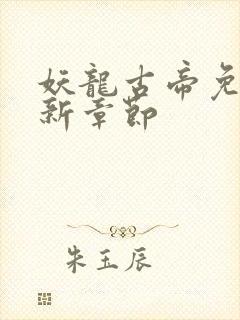 妖龍古帝免
新章節
朱玉辰